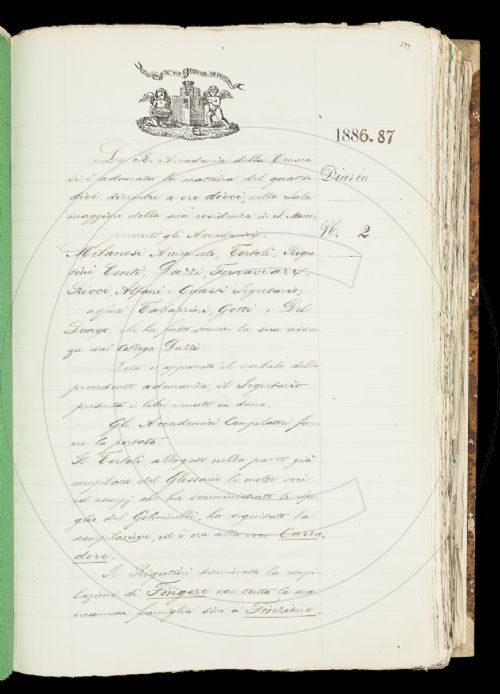 199
1886-87
La R. Accademia della Crusca
si è adunata la mattina del quattor
dici dicembre a ore dieci, nella Sala
maggiore della sua residenza in S. Marco,
presenti gli Accademici:
Milanesi Arciconsolo, Tortoli, Rigu
tini, Conti, Dazzi, Tornaciari,
Ricci, Alfani e Guasti Segretario;
assenti Tabarrini, Gotti e Del
Lungo, che ha fatto scusare la sua assen
za dal Collega Dazzi.
Letto e approvato il verbale della
precedente adunanza, il Segretario
presenta i libri venuti in dono.
Gli Accademici Compilatori fan
no la portata.
Il Tortoli, allogate nella parte già
compilata del Glossario le molte voci
ed esempj che ha somministrato lo spo
glio del ha seguitato la
compilazione, ed è ora alla voce Carra
dore.
Il Rigutini, terminata la compi
lazione di Fingere con tutta la sua
numerosa famiglia sino a Finzione,
Diario
976. 2